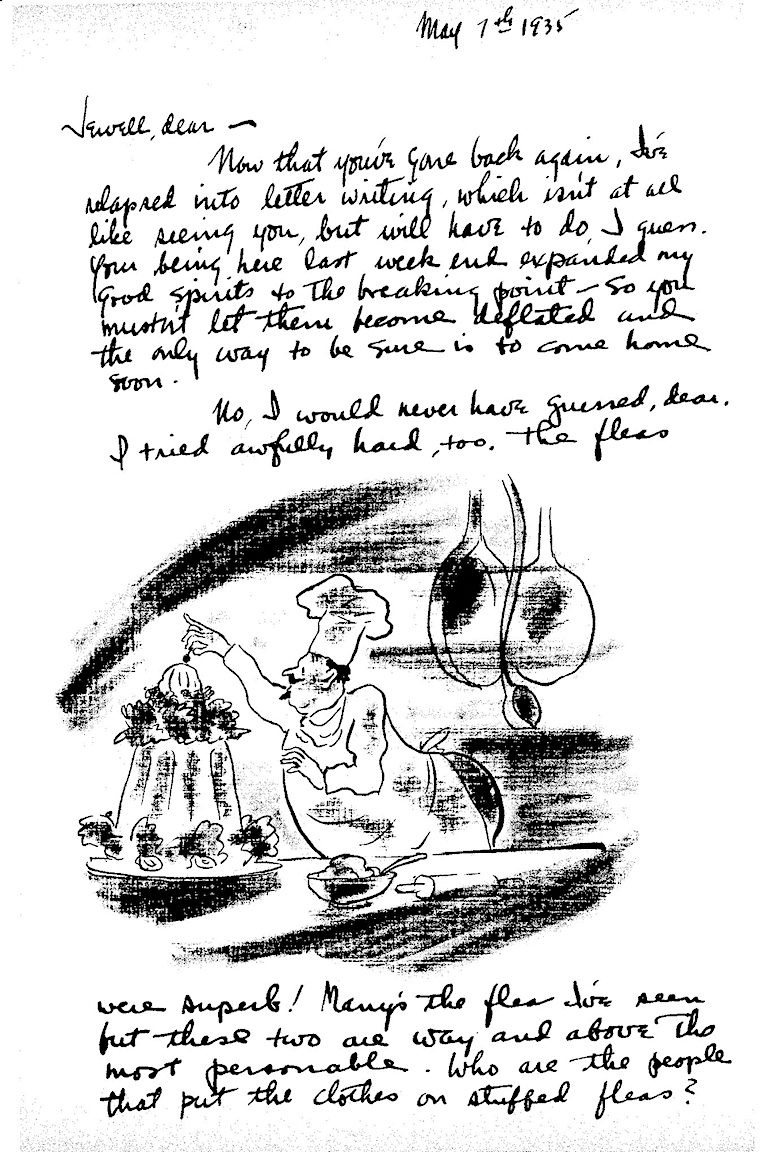 May 7th 1935
Jewell, dear —
Now that you've gone back again, I've
relapsed into letter writing, which isn't at all
like seeing you, but will have to do, I guess.
Your being here last week end expanded my
good spirits to the breaking point — So you
mustn't let them become deflated and
the only way to be sure is to come home
soon.
No, I would never have guessed, dear.
I tried awfully hard, too. The fleas
were superb! Many's the flea I've seen
but these two are way and above the
most personable. Who are the people
that put the clothes on stuffed fleas?